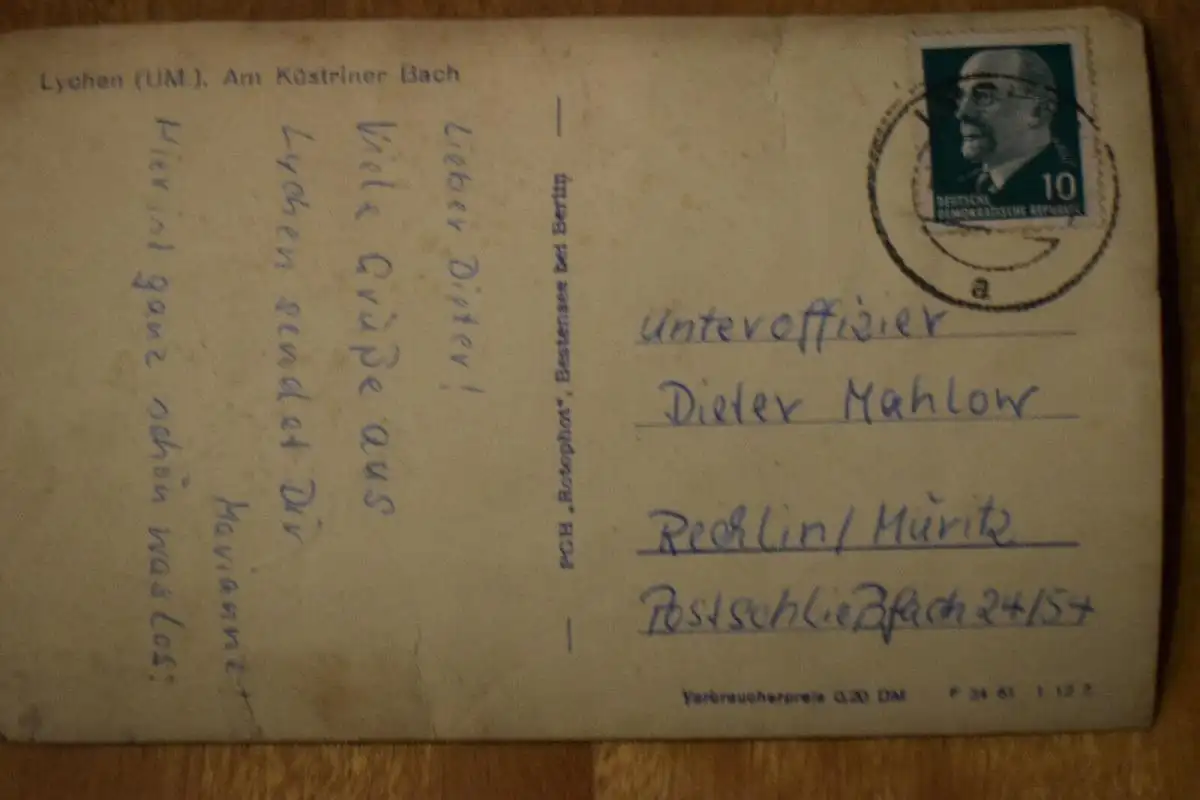 Lychen (UM.). Am Küstriner Bach
Lieber Dieter!
Viele Grüße aus
Lychen sendet Dir
Marianne
Hier ist ganz schön was los!
PGH „Rotophot", Bestensee bei Berlin
10
DEUTSCHE
DEMOKRATISCHE REPUBLIK
a
Unteroffizier
Dieter Mahlow
Rechlin/Müritz
Postschließfach 24/54
Verbraucherpreis 0,20 DM